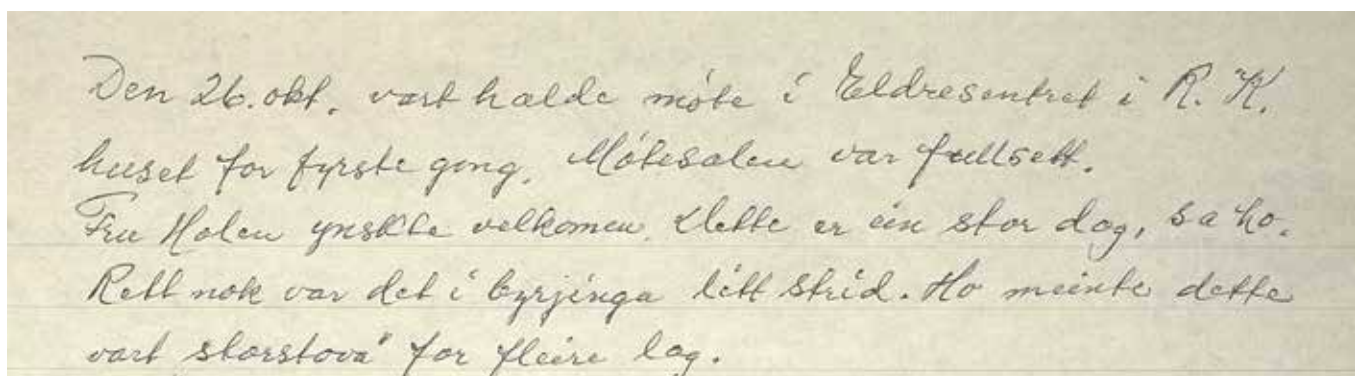 Den 26. okt. vart halde møte i Eldresentret i R. K.
huset for fyrste gong. Møtesalen var fullsett.
Fru Holen ynskte velkomen. Dette er ein stor dag, sa ho.
Rett nok var det i byrjinga litt strid. Ho meinte dette
vart storstova" for fleire lag.